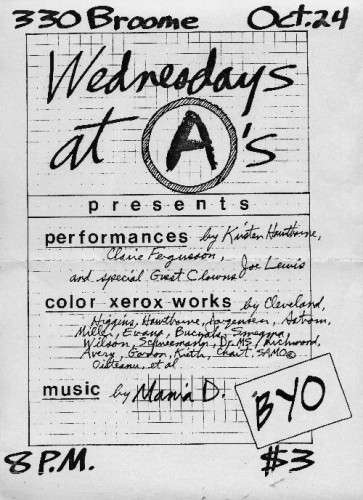 330 Broome Oct. 24
Wednesdays
at A's
presents
performances by Kirsten Hawthorne,
Claire Fergusson,
and special Guest Clowns Joe Lewis
color xerox works by Cleveland,
Higgins, Hawthorne, Jorgensen,
Miller, Evans,
Wilson, Schneemann, Dr. MS / Richmond,
Avery, Gordon, SAMO©
Oilteanu, et al
music by Mania D.
BYO
8 P.M. $3